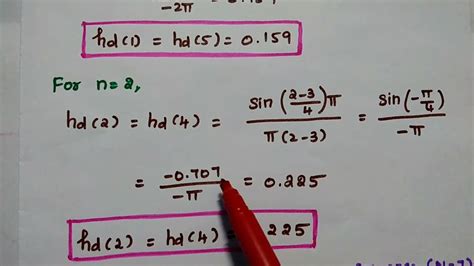 -2π
hd(1) = hd(5) = 0.159
For n=2,
hd(2) = hd(4) = sin((2-3)/4)π / π(2-3) = sin(-π/4) / -π
= -0.707 / -π = 0.225
hd(2) = hd(4) = 225